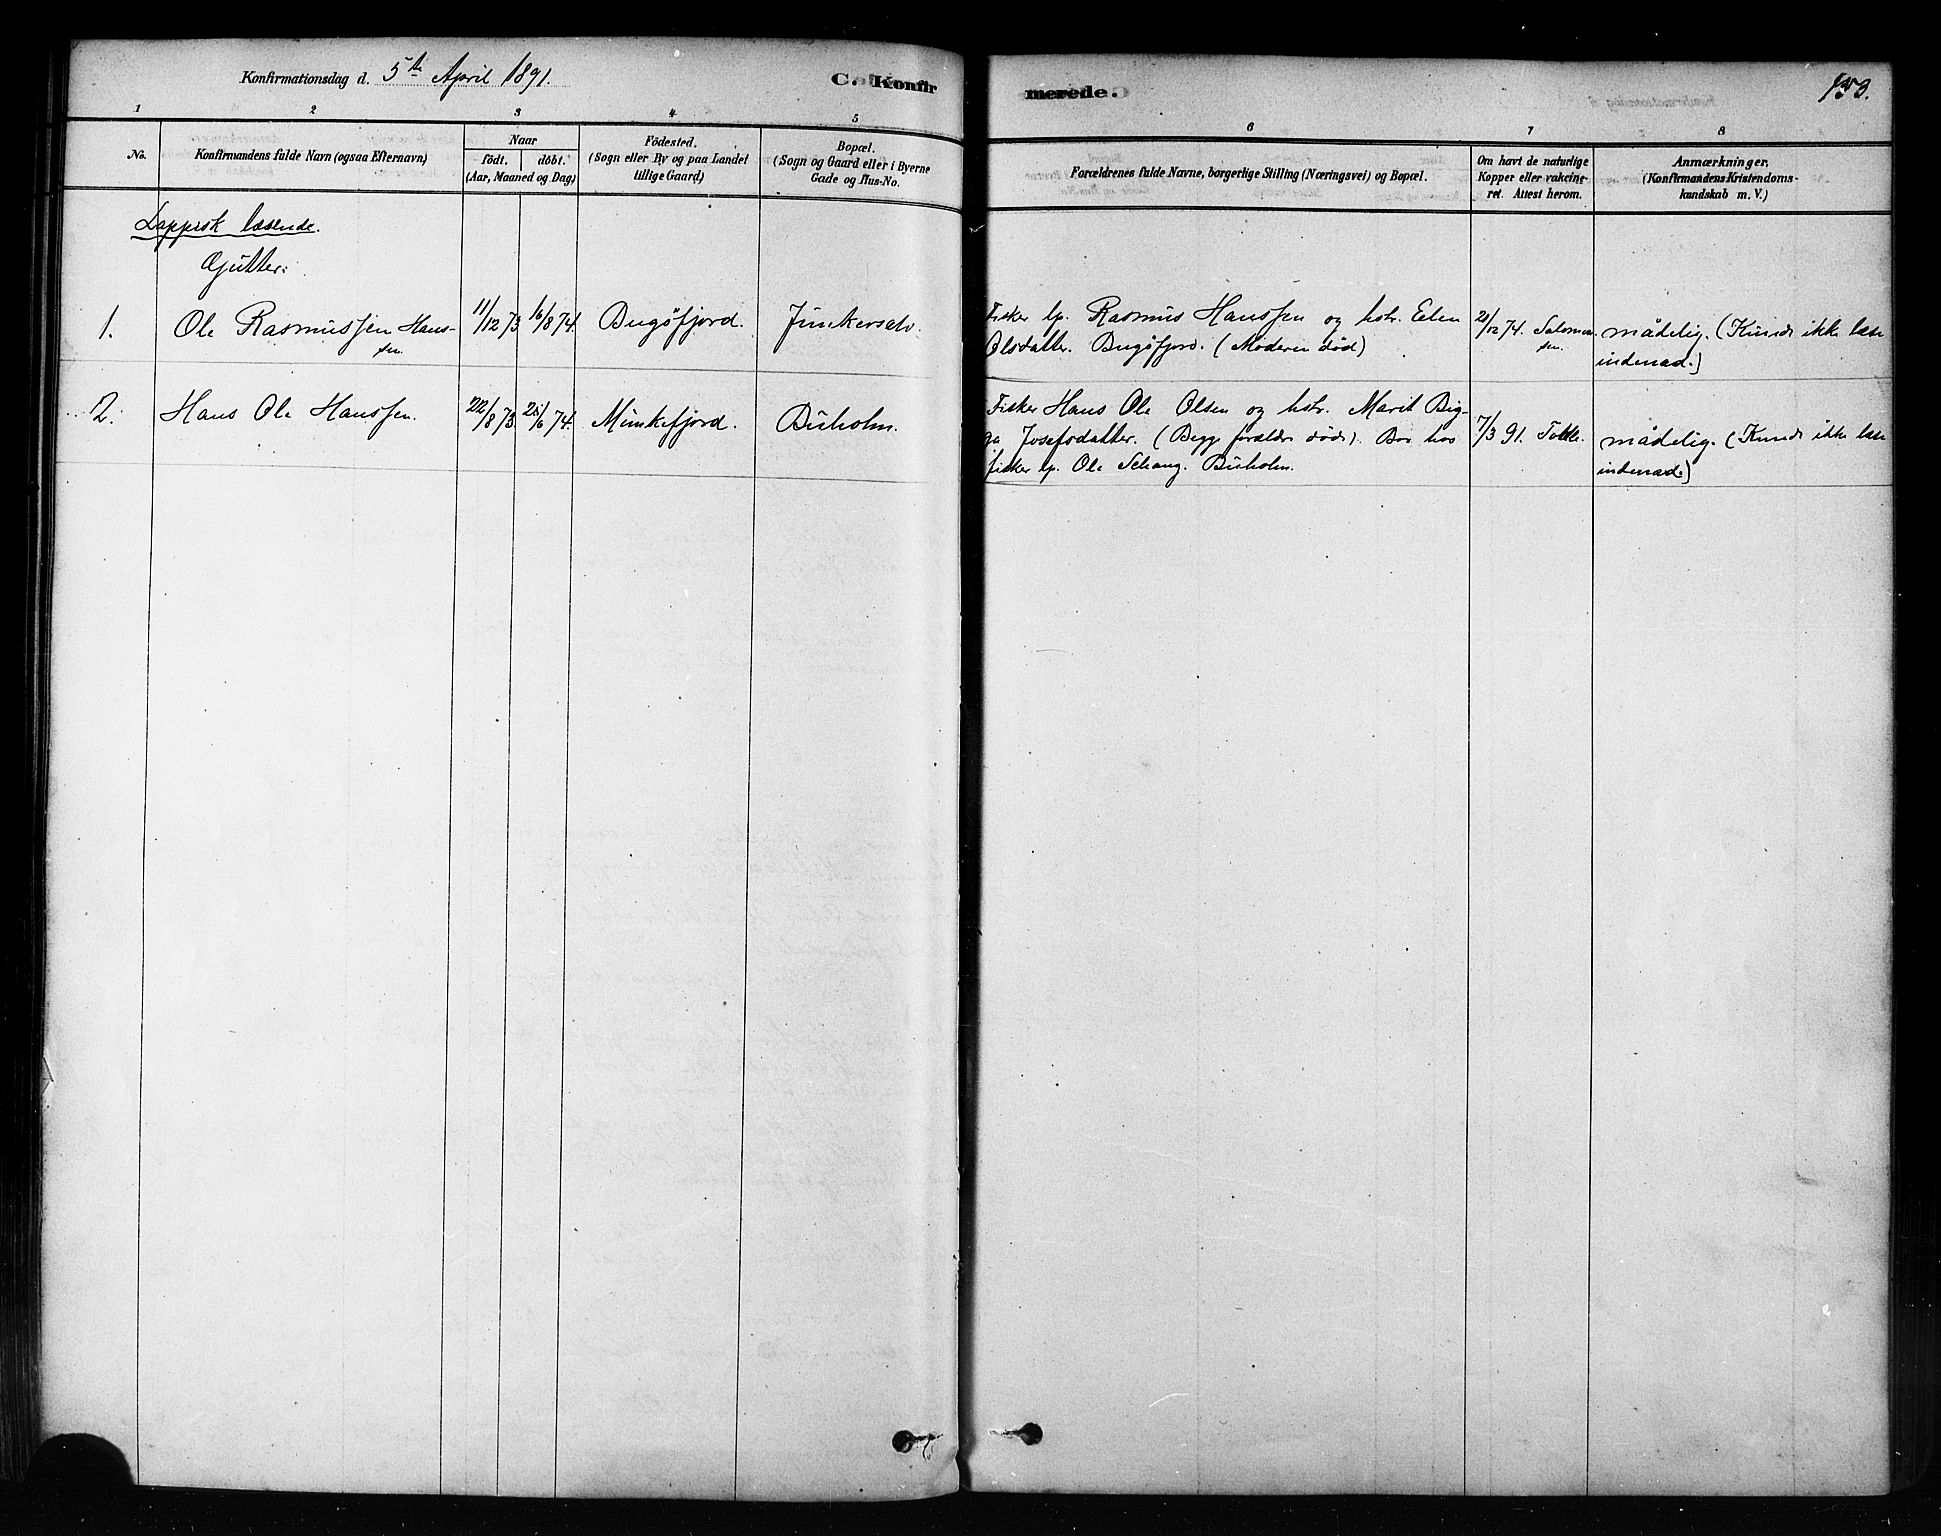 Konfirmationsdag d. 5te April 1891.
C. Konfir
merede.
153.
1 2 3 4 5
6 7 8
No.
Konfirmandens fulde Navn (ogsaa Efternavn)
Naar
født. døbt.
(Aar, Maaned og Dag)
Fødested.
(Sogn eller By og paa Landet
tillige Gaard)
Bopæl.
(Sogn og Gaard eller i Byerne
Gade og Hus-No.
Forældrenes fulde Navne, borgerlige Stilling (Næringsvei) og Bopæl.
Om havt de naturlige
Kopper eller vakcine-
ret. Attest herom.
Anmærkninger,
(Konfirmandens Kristendoms-
kundskab m. V.)
Lappisk læsende.
Gutter:
1. Ole Rasmussen Hans-
sen. 11/12 73 16/8 74. Bugøfjord. Junkerselv.
Fisker lp. Rasmus Hanssen og hstr. Elen
Olsdatter. Bugøfjord. (Moderen død)
21/12 74. Salomon-
sen.
mådelig. (Kunde ikke læse
indenad.)
2. Hans Ole Hanssen. 22/8 73 25/6 74. Munkefjord. Buholm.
Fisker Hans Ole Olsen og hstr. Marit Big-
ga Josefsdatter. (Begge forældre døde). Bor hos
fisker lp. Ole Schang. Buholm.
7/3 91.
mådelig. (Kunde ikke læse
indenad.)